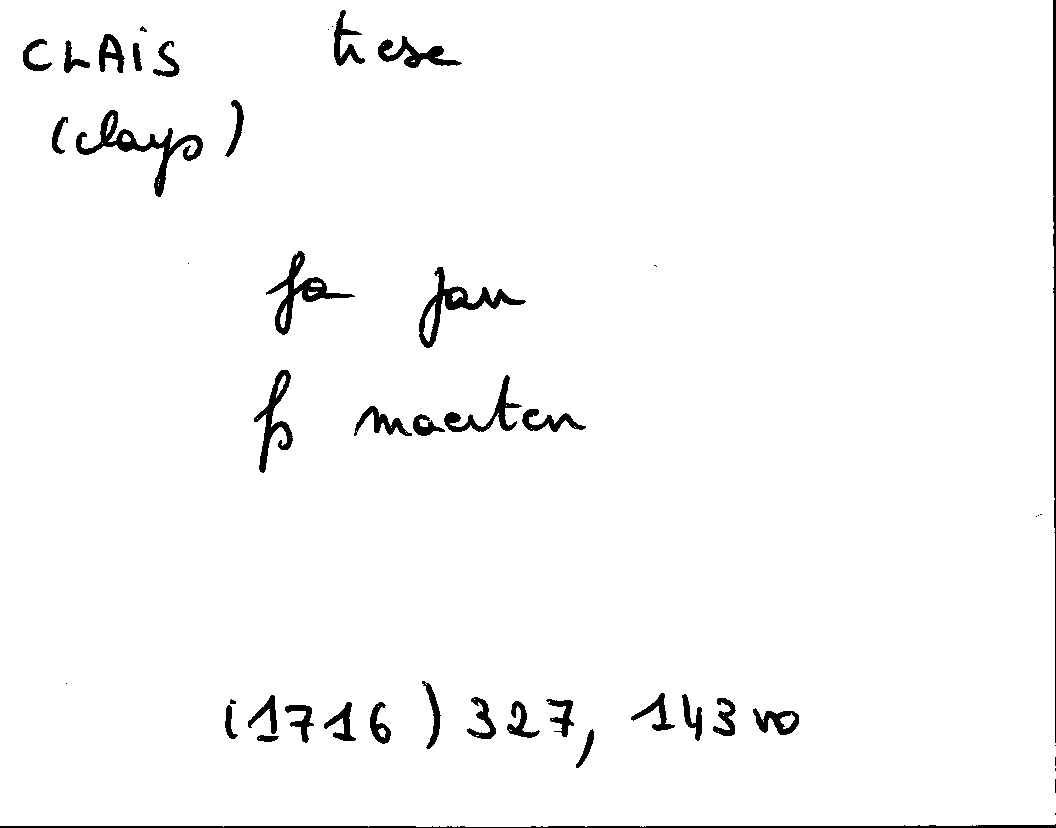 CLAIS triese
(clays)
fa jan
fs maerten
(1716) 327, 143 vo